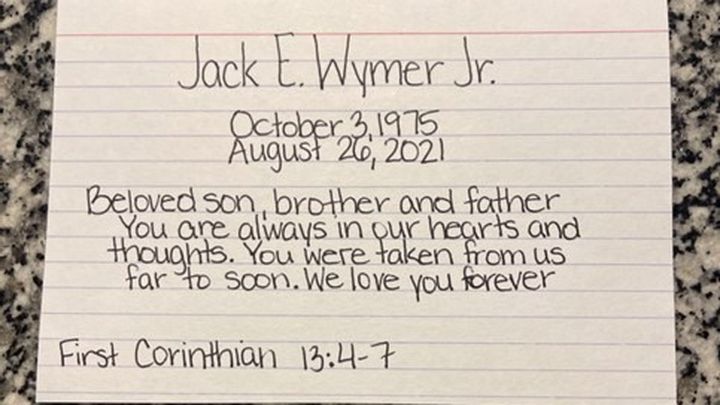 Jack E. Wymer Jr.
October 3, 1975
August 26, 2021
Beloved son, brother and father
You are always in our hearts and
thoughts. You were taken from us
far to soon. We love you forever
First Corinthian 13:4-7